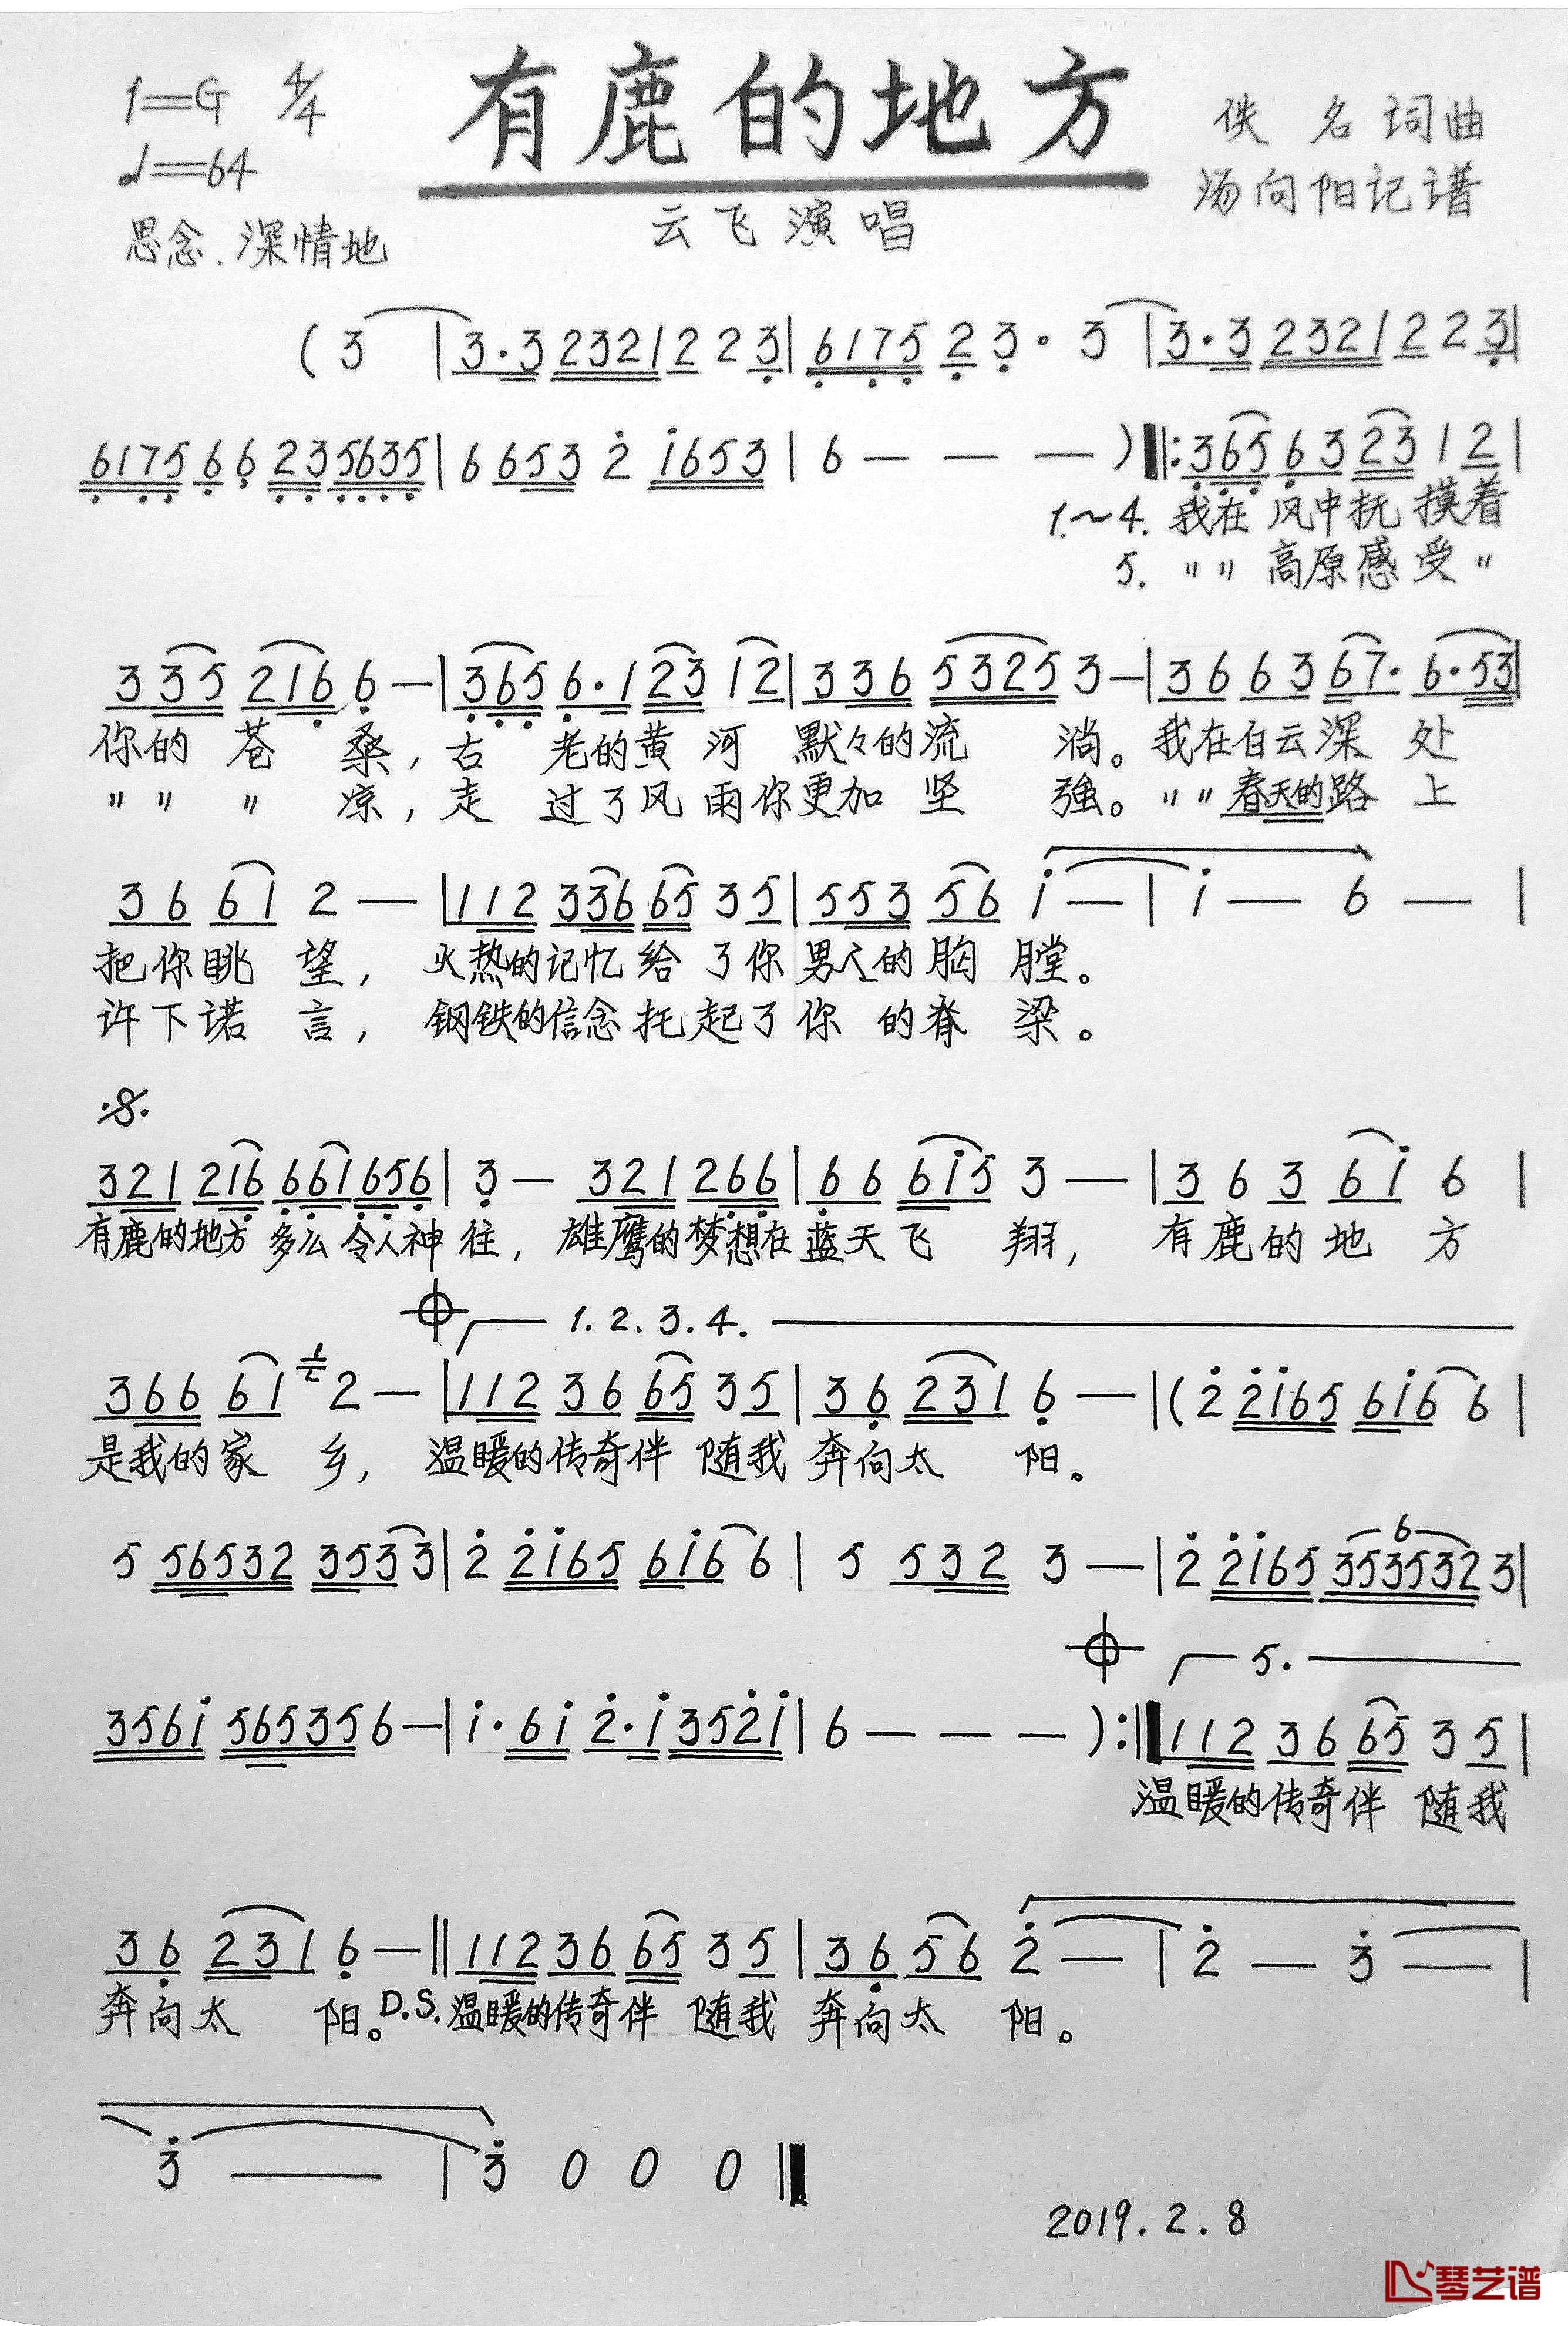 1=G 4/4
♩=64
思念.深情地
有鹿的地方
云飞演唱
佚名词曲
汤向阳记谱
( 3 | 3·3 2321 2 2 3 | 6175 2 3· 3 | 3·3 2321 2 2 3 |
6175 6 6 23 5635 | 6 653 2 1653 | 6 — — — ) ‖: 365 6 3 23 1 2 |
1.~4. 我在 风中抚 摸着
5. 〃〃 高原感 受〃
3 35 216 6 — | 365 6·1 23 1 2 | 3 36 5325 3 — | 3 6 6 3 67· 6·53 |
你的 苍 桑, 古 老的黄 河 默々的流 淌。我在白云深 处
〃〃 〃 凉, 走 过了风 雨你更加 坚 強。〃〃春天的路 上
3 6 6 1 2 — | 1 12 336 65 3 5 | 5 53 5 6 1 — | 1 — 6 — |
把你眺 望, 火热的记忆 给 了你 男人的 胸 膛。
许下诺 言, 钢铁的信念 托起了 你 的脊 梁。
:S:
321 216 661656 | 3 — 321 266 | 6 6 615 3 — | 3 6 3 6 1 6 |
有鹿的地方 多么 令人神 往, 雄鹰的梦想在蓝天飞 翔, 有鹿的地 方
1. 2. 3. 4.
366 6 1 1 2 — | 1 12 3 6 65 3 5 | 3 6 231 6 — | ( 2 2165 616 6 |
是我的家 乡, 温暖的传奇伴 随我 奔向太 阳。
5 56532 3533 | 2 2165 616 6 | 5 532 3 — | 2 2165 353532 3 |
6
5.
3561 565356 — | 1·61 2·1 3521 | 6 — — — ) :‖ 112 3 6 65 3 5 |
温暖的传奇伴 随我
3 6 231 6 — ‖ 112 36 65 3 5 | 3 6 5 6 2 — | 2 — 3 — |
奔向太 阳。D.S. 温暖的传奇伴 随我 奔向太 阳。
3 — | 3 0 0 0 ‖
2019.2.8
琴艺谱